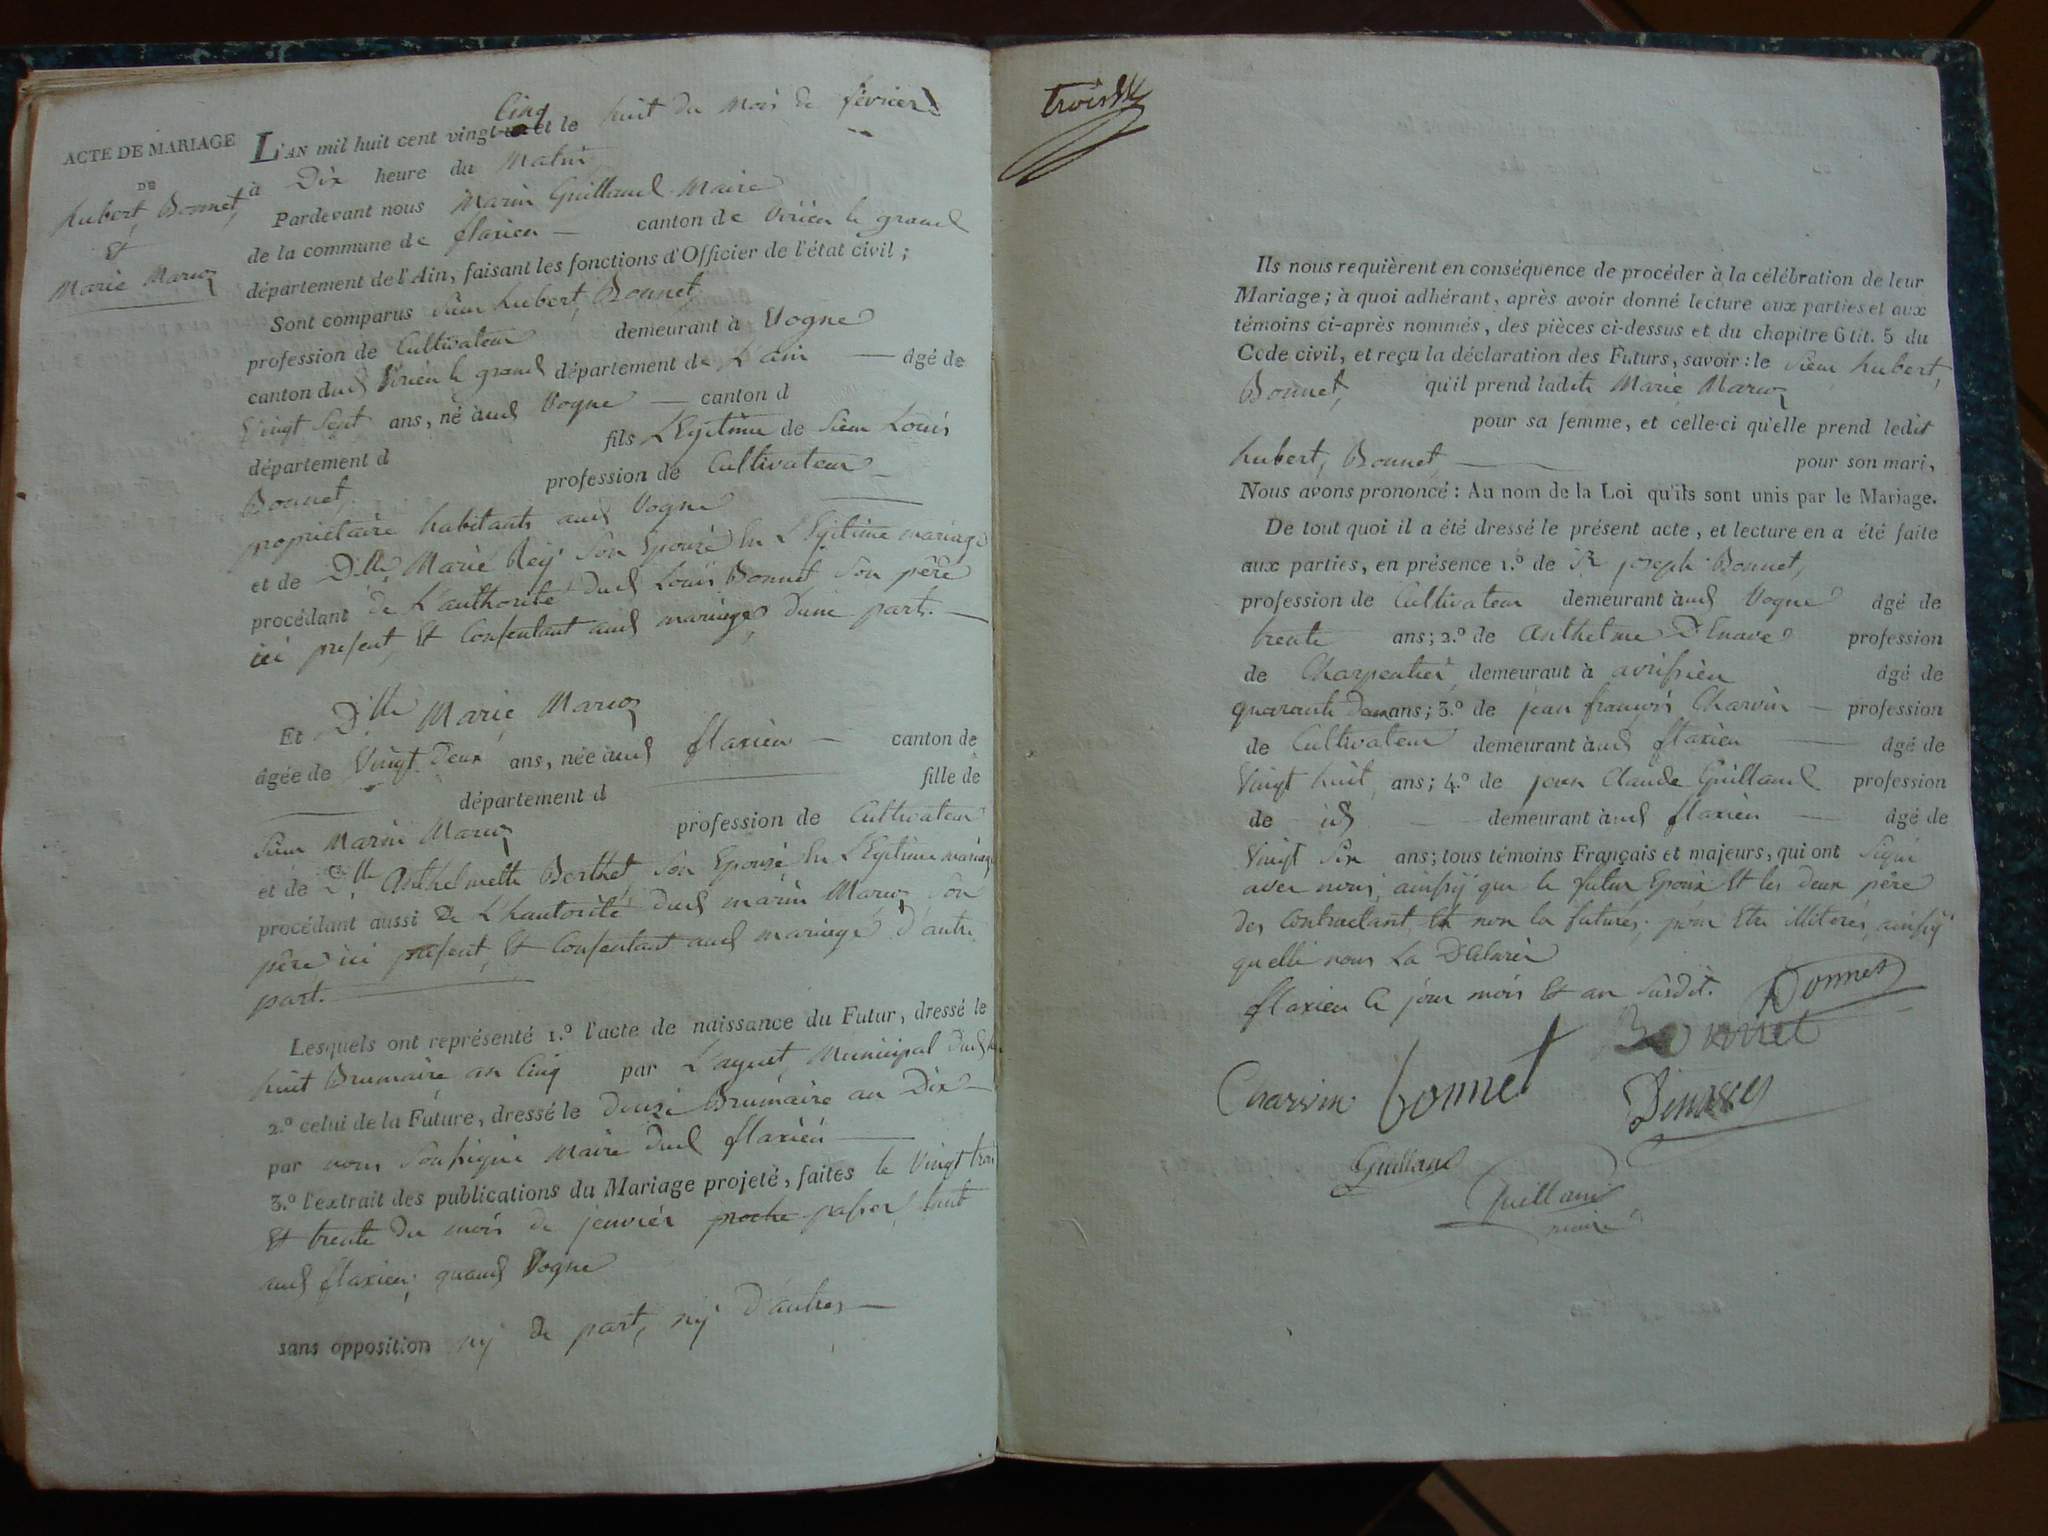 ACTE DE MARIAGE
DE
hubert, Bonnet,
Et
Marie Maruoz
Cinq
L'AN mil huit cent vingt-un et le huit du mois de février
à Dix heure du Matin
Pardevant nous Marin Guilland Maire
de la commune de flaxieu — canton de Virieu le grand
département de l'Ain, faisant les fonctions d'Officier de l'état civil ;
Sont comparus Sieur hubert, Bonnet,
profession de Cultivateur demeurant à Vogne
canton dud Virieu le grand département de L'ain — âgé de
Vingt Sept ans, né aud Vogne — canton d
département d fils LEgitime de Sieur Louis
Bonnet, profession de Cultivateur
propriétaire habitants aud Vogne
et de Dlle Marie Rey Son Epouse En LEgitime mariage
procédant de L'authorité dud Louis Bonnet Son père
ici présent, Et Consentant aud mariage, d'une part. —
Et Dlle Marie Maruoz
âgée de Vingt Deux ans, née aud flaxieu — canton de
département d fille de
Sieur Marin Maruoz profession de Cultivateur
et de Dlle Anthelmette Berthet Son Epouse En LEgitime mariage
procédant aussi de L'hautorité dud marin Maruoz Son
père ici présent, Et Consentant aud mariage D'autre
part.
Lesquels ont représenté 1.º l'acte de naissance du Futur, dressé le
huit Brumaire an Cinq par L'agent Municipal dud
2.º celui de la Future, dressé le Douze Brumaire an Dix —
par nous Soussigné Maire dud flaxieu
3.º l'extrait des publications du Mariage projeté, faites le Vingt trois
Et trente du mois de janvier proche passer, tant
aud flaxieu, quaud Vogne
sans opposition ny de part, ny D'autres —
trois
Ils nous requièrent en conséquence de procéder à la célébration de leur
Mariage ; à quoi adhérant, après avoir donné lecture aux parties et aux
témoins ci-après nommés, des pièces ci-dessus et du chapitre 6 tit. 5 du
Code civil, et reçu la déclaration des Futurs, savoir : le Sieur hubert,
Bonnet, qu'il prend ladite Marie Maruoz
pour sa femme, et celle-ci qu'elle prend ledit
hubert, Bonnet, — pour son mari,
Nous avons prononcé : Au nom de la Loi qu'ils sont unis par le Mariage.
De tout quoi il a été dressé le présent acte, et lecture en a été faite
aux parties, en présence 1.º de Sr joseph Bonnet,
profession de Cultivateur demeurant aud Vogne âgé de
trente ans ; 2.º de Anthelme DEnave profession
de Charpentier demeurant à avrissieu âgé de
quarante Deux ans ; 3.º de jean françois Charvin — profession
de Cultivateur demeurant aud flaxieu — âgé de
Vingt huit ans ; 4.º de jean Claude Guilland profession
de id — demeurant aud flaxieu — âgé de
Vingt Six ans ; tous témoins Français et majeurs, qui ont Signé
avec nous, ainssy que le futur Epoux Et les deux père
des Contractant Et non la future, pour Etre illiterés, ainssy
quelle nous La Déclarer
flaxieu le jour mois Et an Susdit. Bonnet
Bonnet
Charvin Bonnet
Guilland
Guilland
maire